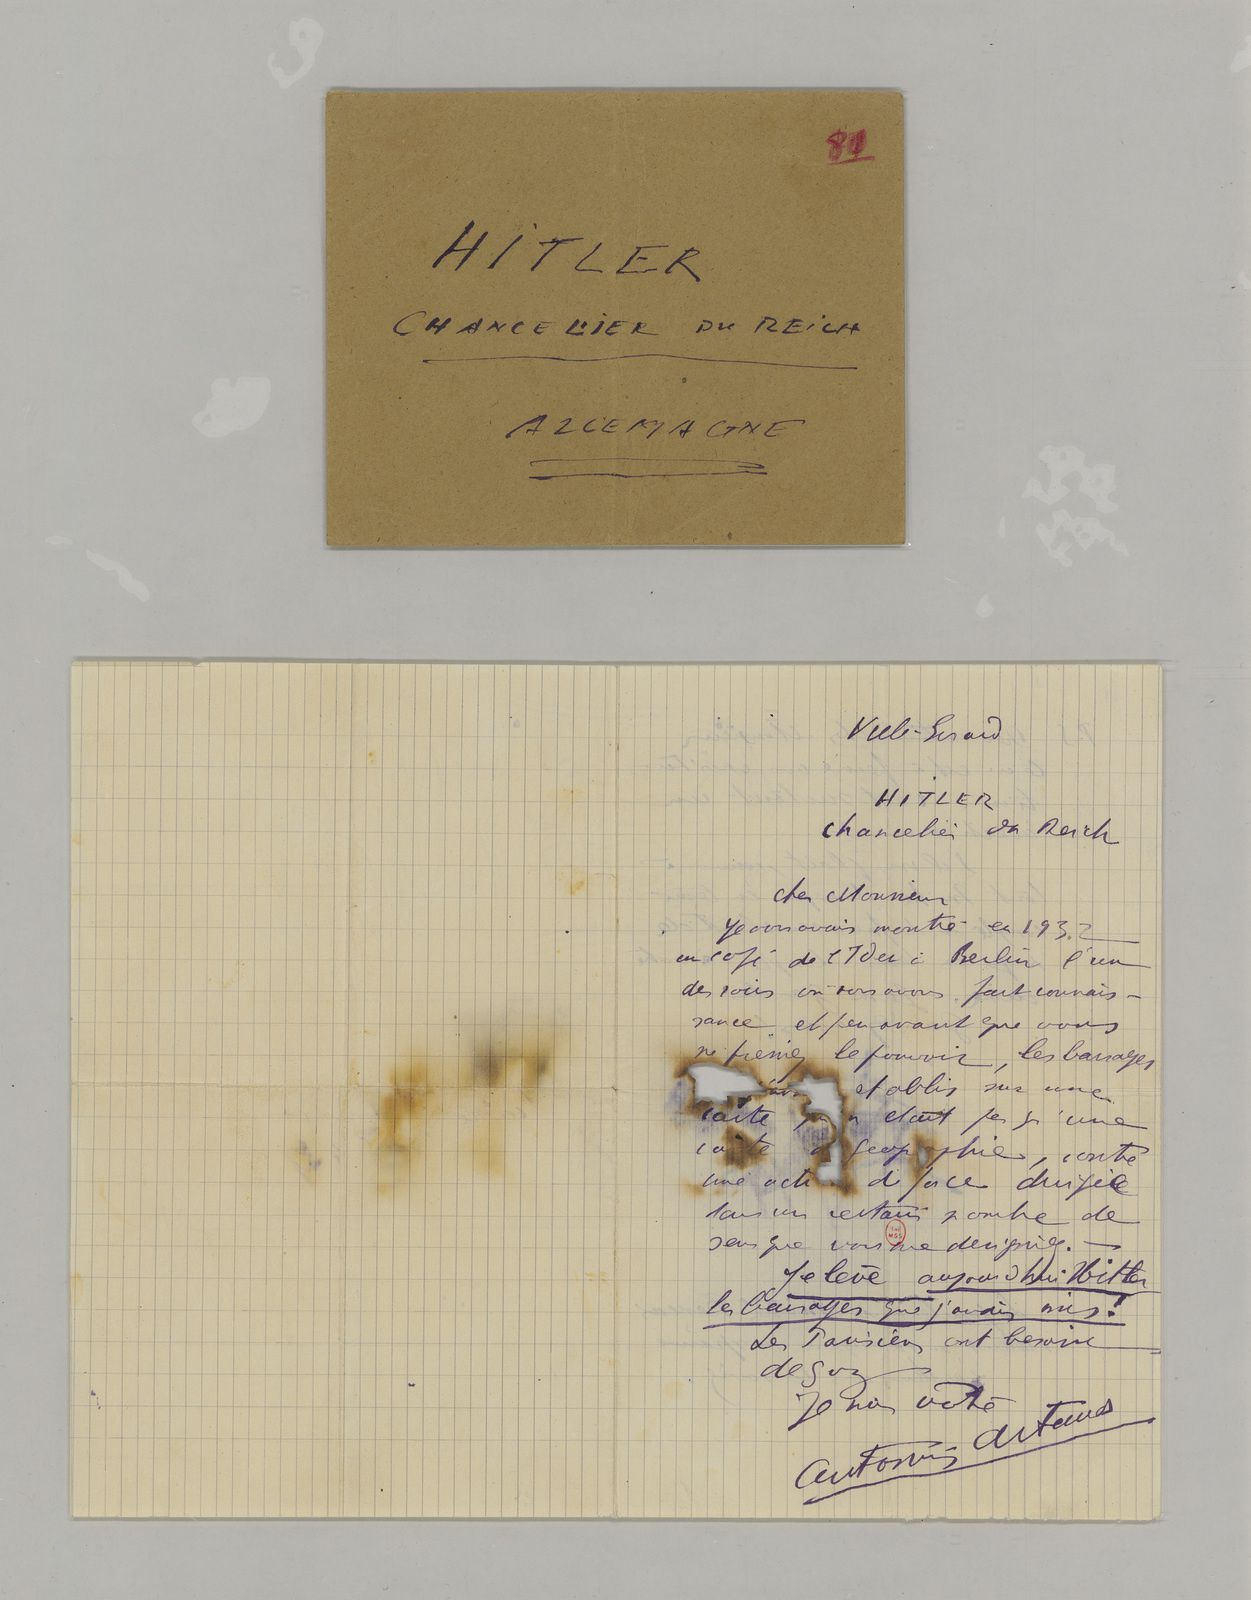 81
HITLER
CHANCELIER DU REICH
ALLEMAGNE
Ville-Evrard
HITLER
Chancelier du Reich
Cher Monsieur
Je vous avais montré en 1932
au café de l'Ider à Berlin l'un
des soirs où nous avons fait connais-
sance et peu avant que vous
ne preniez le pouvoir, les barrages
établis sur une
carte qui n était pas qu'une
carte de géographie, contre
une action de force dirigée
dans un certain nombre de
sens que vous me désigniez. —
Je lève aujourd'hui Hitler
les barrages que j'avais mis!
Les Parisiens ont besoin
de gaz
Je suis votre
Antonin Artaud